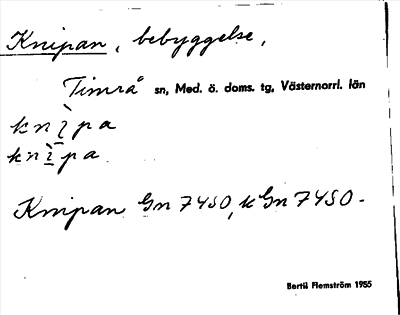 Knipan, bebyggelse,
Timrå sn, Med. ö. doms. tg, Västernorrl. län
knì̠pa
knì̠pa
Knipan Gn 7450, k Gn 7450-
Bertil Flemström 1955